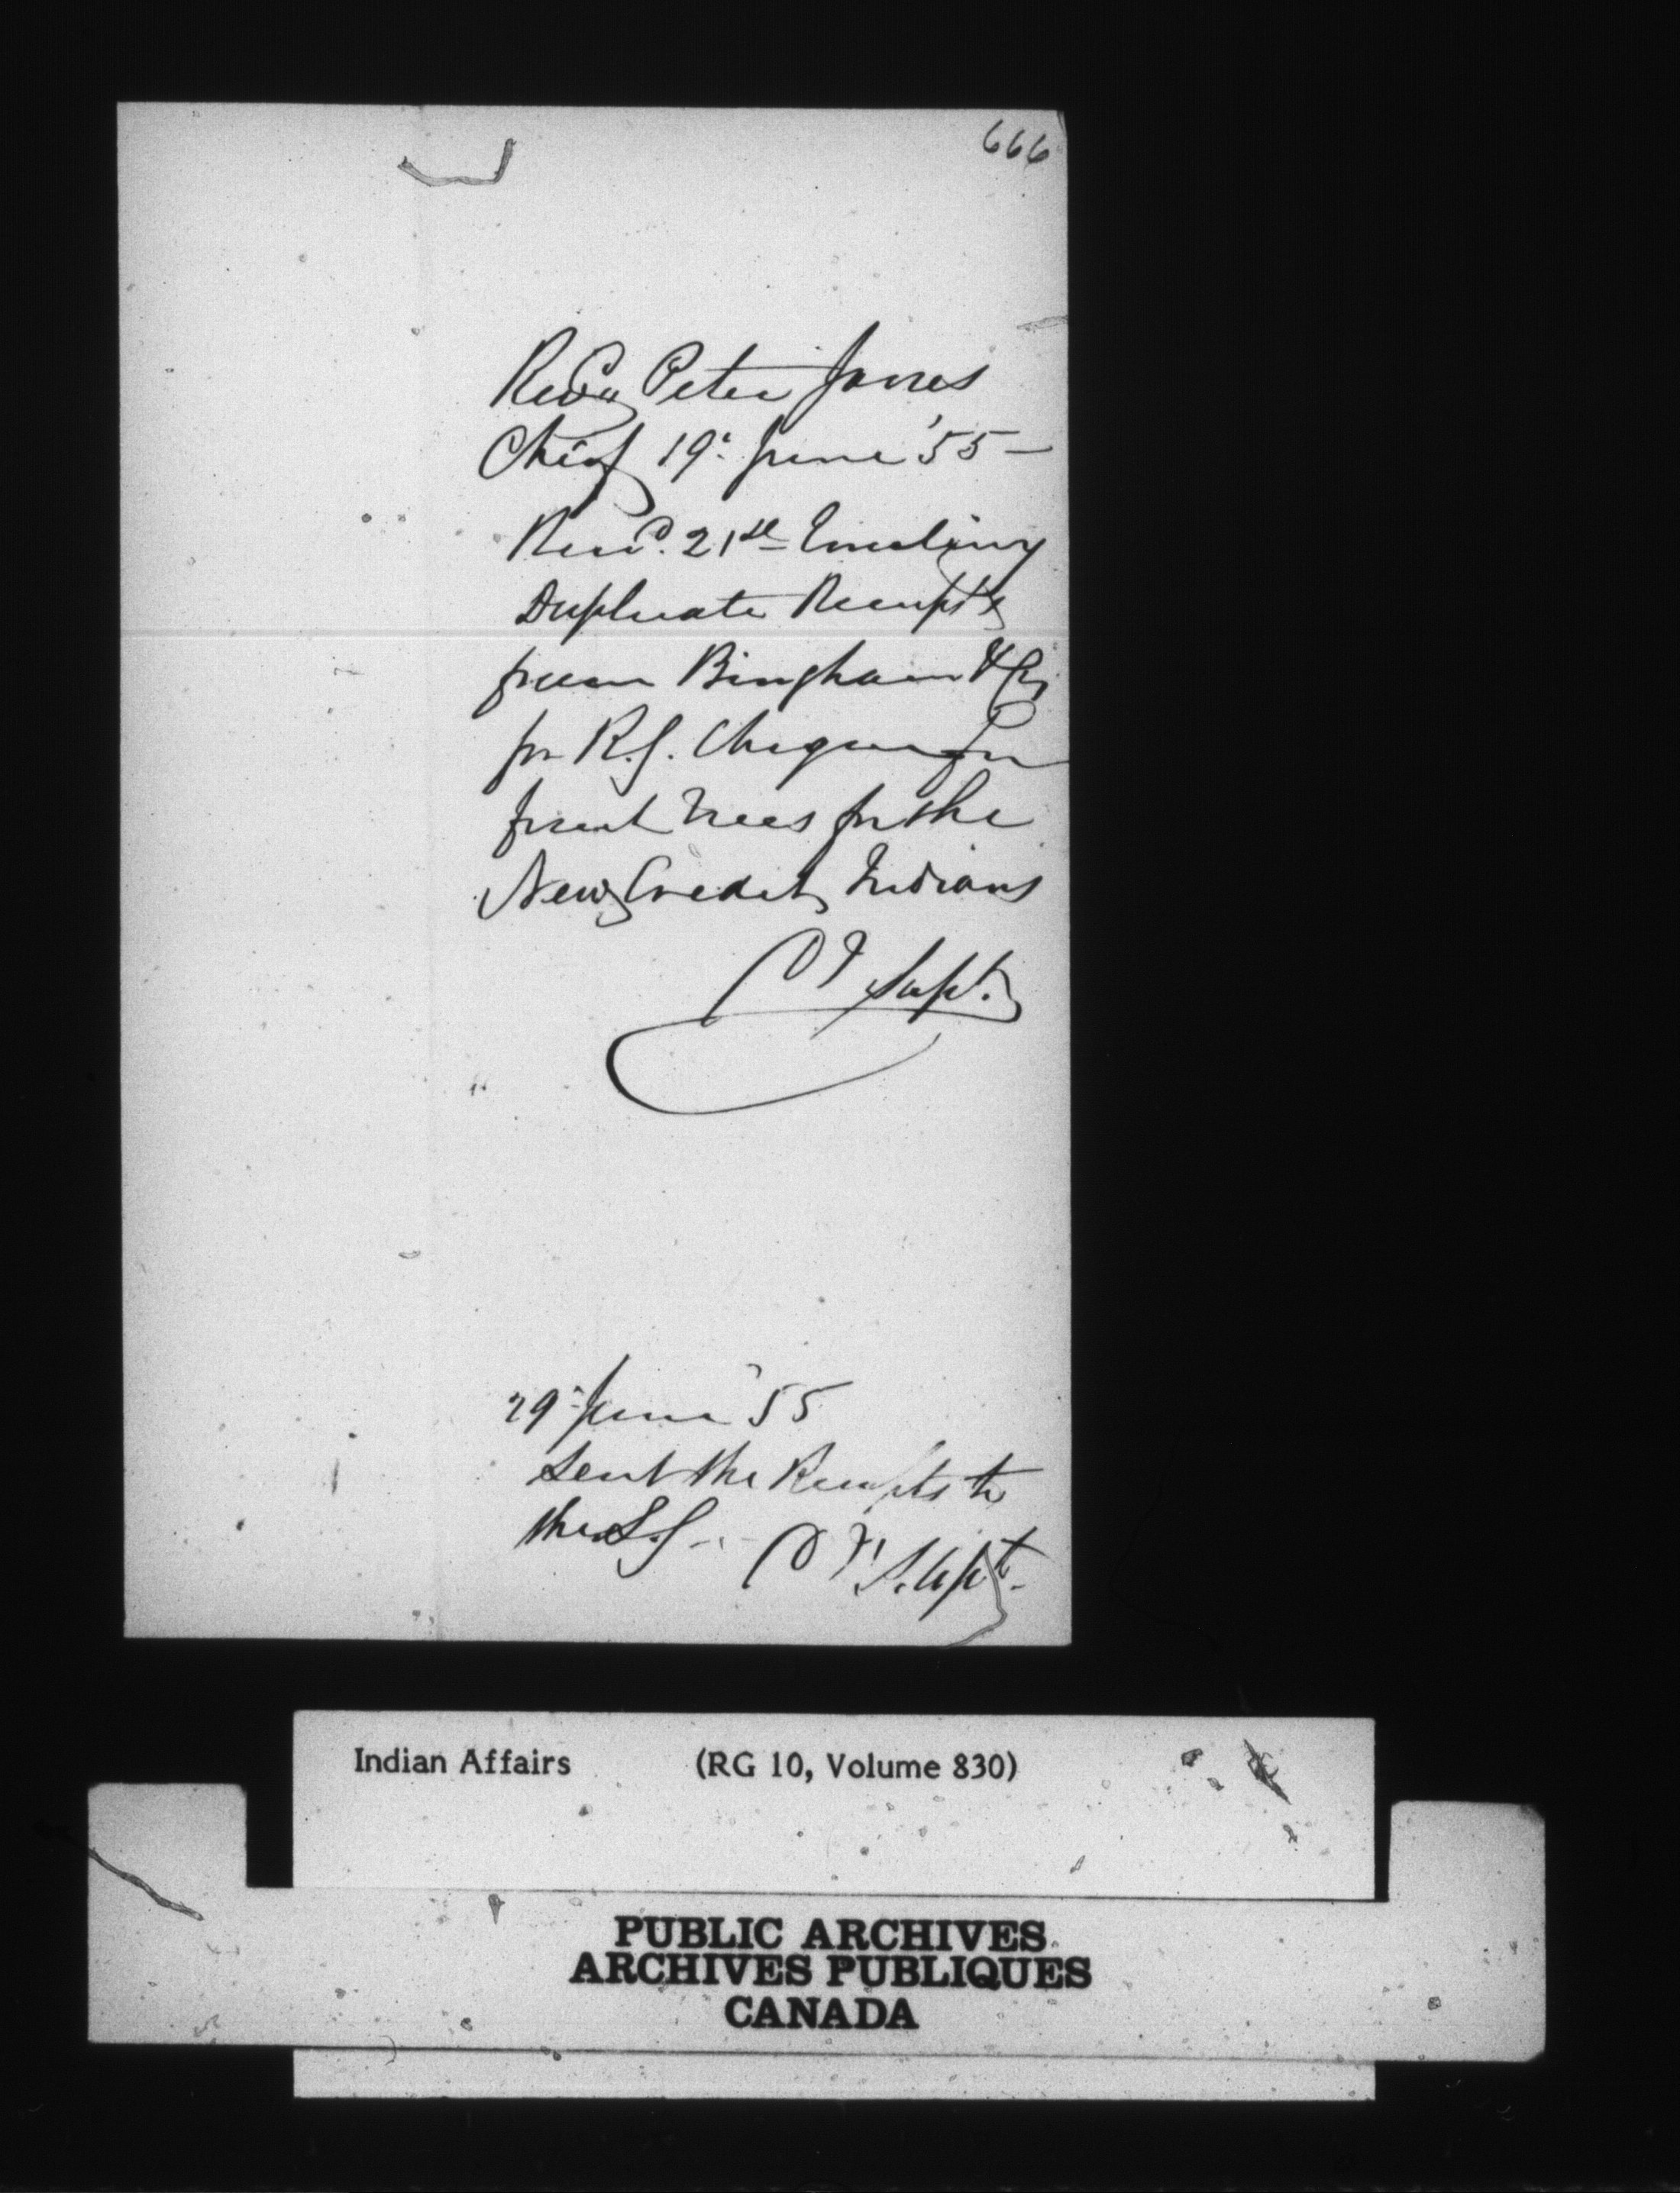 666
Revd Peter Jones
Chief 19th June '55 —
Recd. 21st Enclosing
Duplicate Receipts
from Bingham & Co
for R.G. Cheque for
fruit Trees for the
New Credit Indians
Supt.
29th June '55
Sent the Receipts to
the S.G.
Supt.
Indian Affairs (RG 10, Volume 830)
PUBLIC ARCHIVES
ARCHIVES PUBLIQUES
CANADA